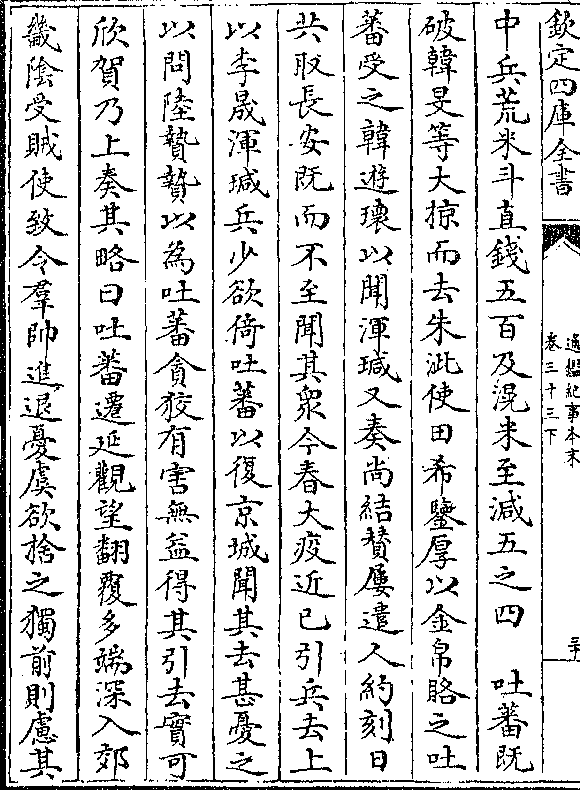 欽定四庫全書
通鑑紀事本末
卷三十三下
二十
中兵荒米斗直錢五百及滉米至減五之四　吐蕃既
破韓旻等大掠而去朱泚使田希鑒厚以金帛賂之吐
蕃受之韓遊瓌以聞渾瑊又奏尚結贊屢遣人約刻日
共取長安既而不至聞其衆今春大疫近已引兵去上
以李晟渾瑊兵少欲倚吐蕃以復京城聞其去甚憂之
以問陸贄贄以為吐蕃貪狡有害無益得其引去實可
欣賀乃上奏其略曰吐蕃遷延觀望翻覆多端深入郊
畿陰受賊使致令羣帥進退憂虞欲捨之獨前則慮其